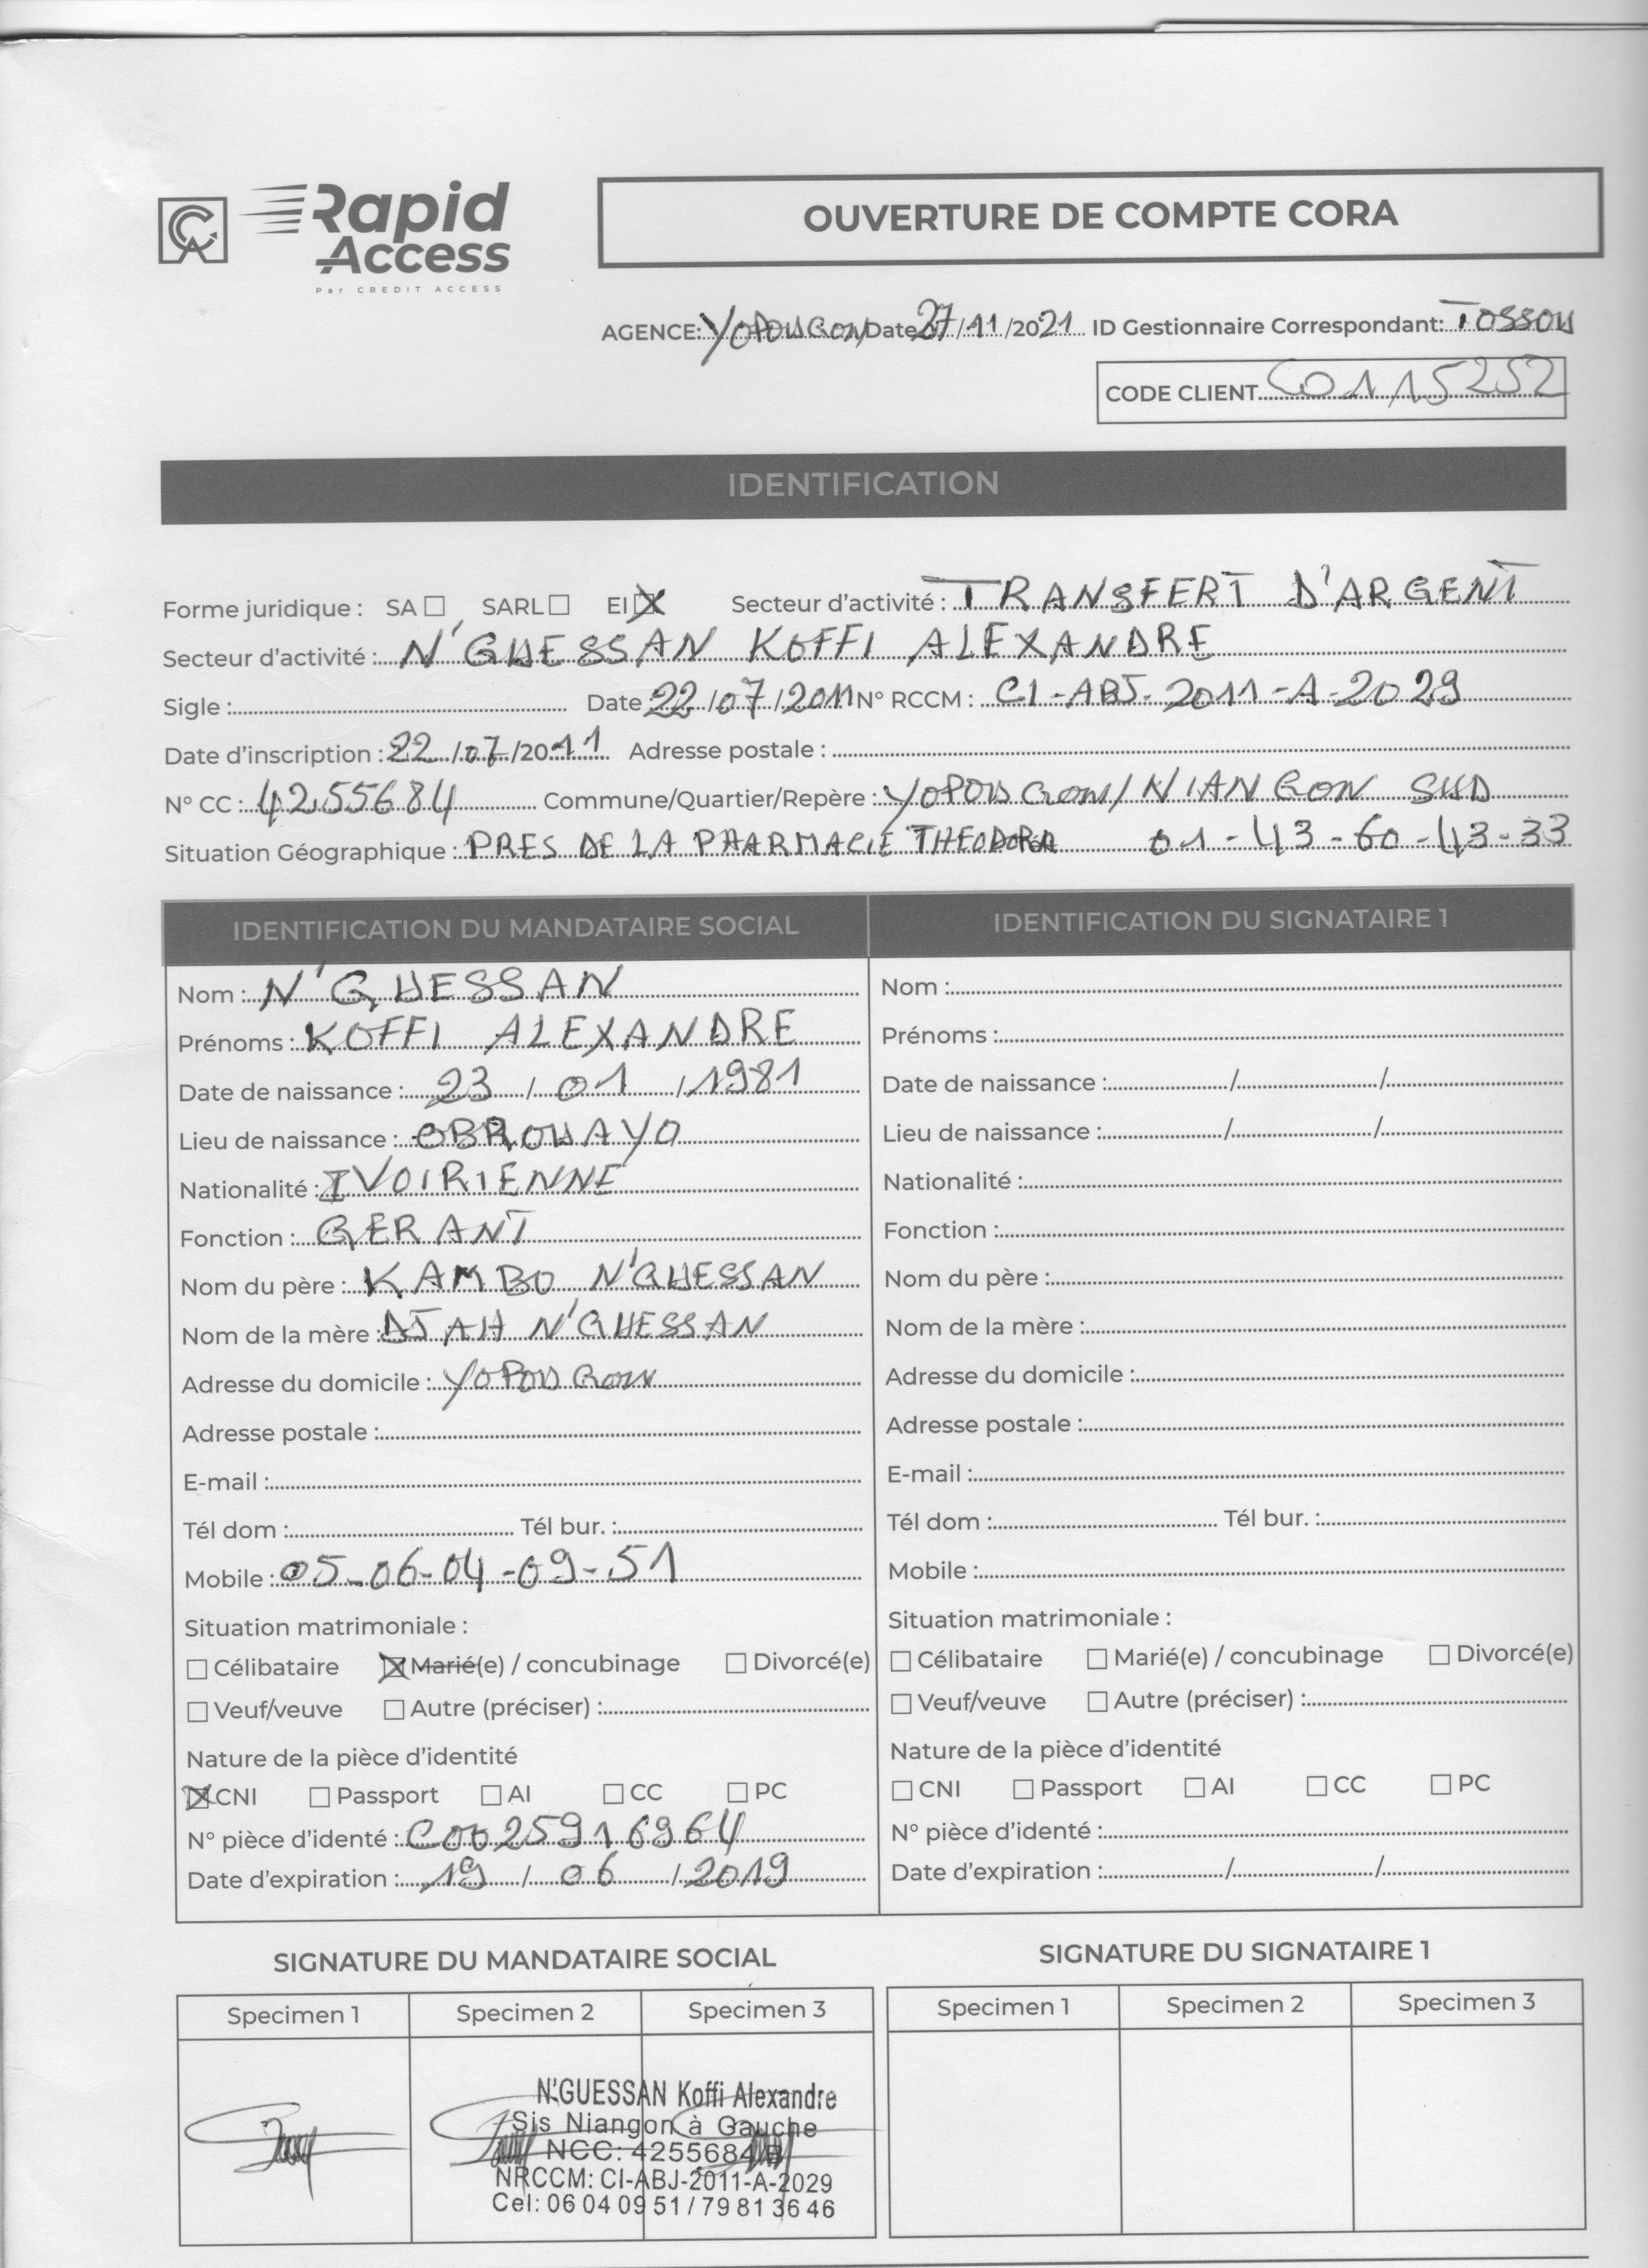 CA Rapid Access
Par CREDIT ACCESS
OUVERTURE DE COMPTE CORA
AGENCE: YOPOUGON Date 27/11/2021 ID Gestionnaire Correspondant: TOSSOU
CODE CLIENT C01115252
IDENTIFICATION
Forme juridique : SA ☐ SARL ☐ EI ☒ Secteur d'activité : TRANSFERT D'ARGENT
Secteur d'activité : N'GUESSAN KOFFI ALEXANDRE
Sigle : Date 22/07/2011 N° RCCM : CI-ABJ-2011-A-2029
Date d'inscription : 22/07/2011 Adresse postale :
N° CC : 4255684 Commune/Quartier/Repère : YOPOUGON/NIANGON SUD
Situation Géographique : PRES DE LA PHARMACIE THEODORA 01-43-60-43-33
IDENTIFICATION DU MANDATAIRE SOCIAL
Nom : N'GUESSAN
Prénoms : KOFFI ALEXANDRE
Date de naissance : 23/01/1981
Lieu de naissance : OBROUAYO
Nationalité : IVOIRIENNE
Fonction : GERANT
Nom du père : KAMBO N'GUESSAN
Nom de la mère : DJAH N'GUESSAN
Adresse du domicile : YOPOUGON
Adresse postale :
E-mail :
Tél dom : Tél bur. :
Mobile : 05-06-04-09-51
Situation matrimoniale :
☐ Célibataire ☒ Marié(e) / concubinage ☐ Divorcé(e)
☐ Veuf/veuve ☐ Autre (préciser) :
Nature de la pièce d'identité
☒ CNI ☐ Passport ☐ AI ☐ CC ☐ PC
N° pièce d'identé : C0025916964
Date d'expiration : 19/06/2019
IDENTIFICATION DU SIGNATAIRE 1
Nom :
Prénoms :
Date de naissance : / /
Lieu de naissance : / /
Nationalité :
Fonction :
Nom du père :
Nom de la mère :
Adresse du domicile :
Adresse postale :
E-mail :
Tél dom : Tél bur. :
Mobile :
Situation matrimoniale :
☐ Célibataire ☐ Marié(e) / concubinage ☐ Divorcé(e)
☐ Veuf/veuve ☐ Autre (préciser) :
Nature de la pièce d'identité
☐ CNI ☐ Passport ☐ AI ☐ CC ☐ PC
N° pièce d'identé :
Date d'expiration : / /
SIGNATURE DU MANDATAIRE SOCIAL
Specimen 1 Specimen 2 Specimen 3
N'GUESSAN Koffi Alexandre
Sis Niangon à Gauche
NCC: 4255684 B
NRCCM: CI-ABJ-2011-A-2029
Cel: 06 04 09 51 / 79 81 36 46
SIGNATURE DU SIGNATAIRE 1
Specimen 1 Specimen 2 Specimen 3